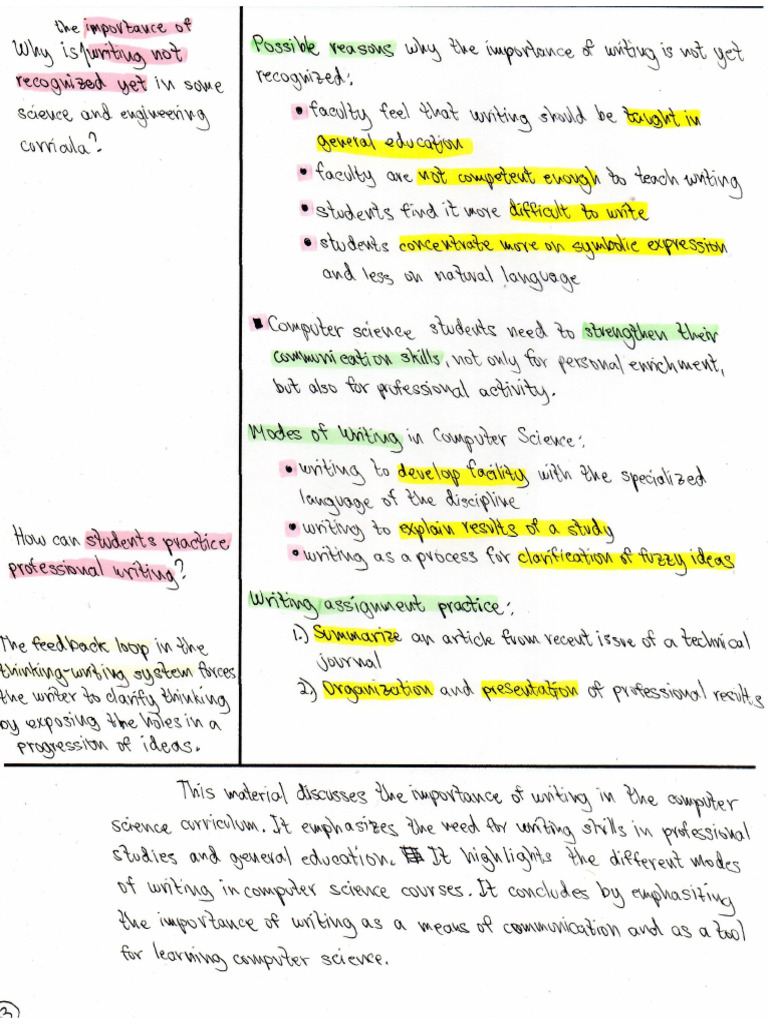 the importance of
Why is writing not
recognized yet in some
science and engineering
curriala?
How can students practice
professional writing?
The feedback loop in the
thinking-writing system forces
the writer to clarify thinking
by exposing the holes in a
progression of ideas.
Possible reasons why the importance of writing is not yet
recognized:
• faculty feel that writing should be taught in
general education
• faculty are not competent enough to teach writing
• students find it more difficult to write
• students concentrate more on symbolic expression
and less on natural language
▪ Computer science students need to strengthen their
communication skills, not only for personal enrichment,
but also for professional activity.
Modes of Writing in Computer Science:
• writing to develop facility with the specialized
language of the discipline
• writing to explain results of a study
• writing as a process for clarification of fuzzy ideas
Writing assignment practice:
1.) Summarize an article from recent issue of a technical
journal
2) Organization and presentation of professional results
This material discusses the importance of writing in the computer
science curriculum. It emphasizes the need for writing skills in professional
studies and general education. It highlights the different modes
of writing in computer science courses. It concludes by emphasizing
the importance of writing as a means of communication and as a tool
for learning computer science.
3